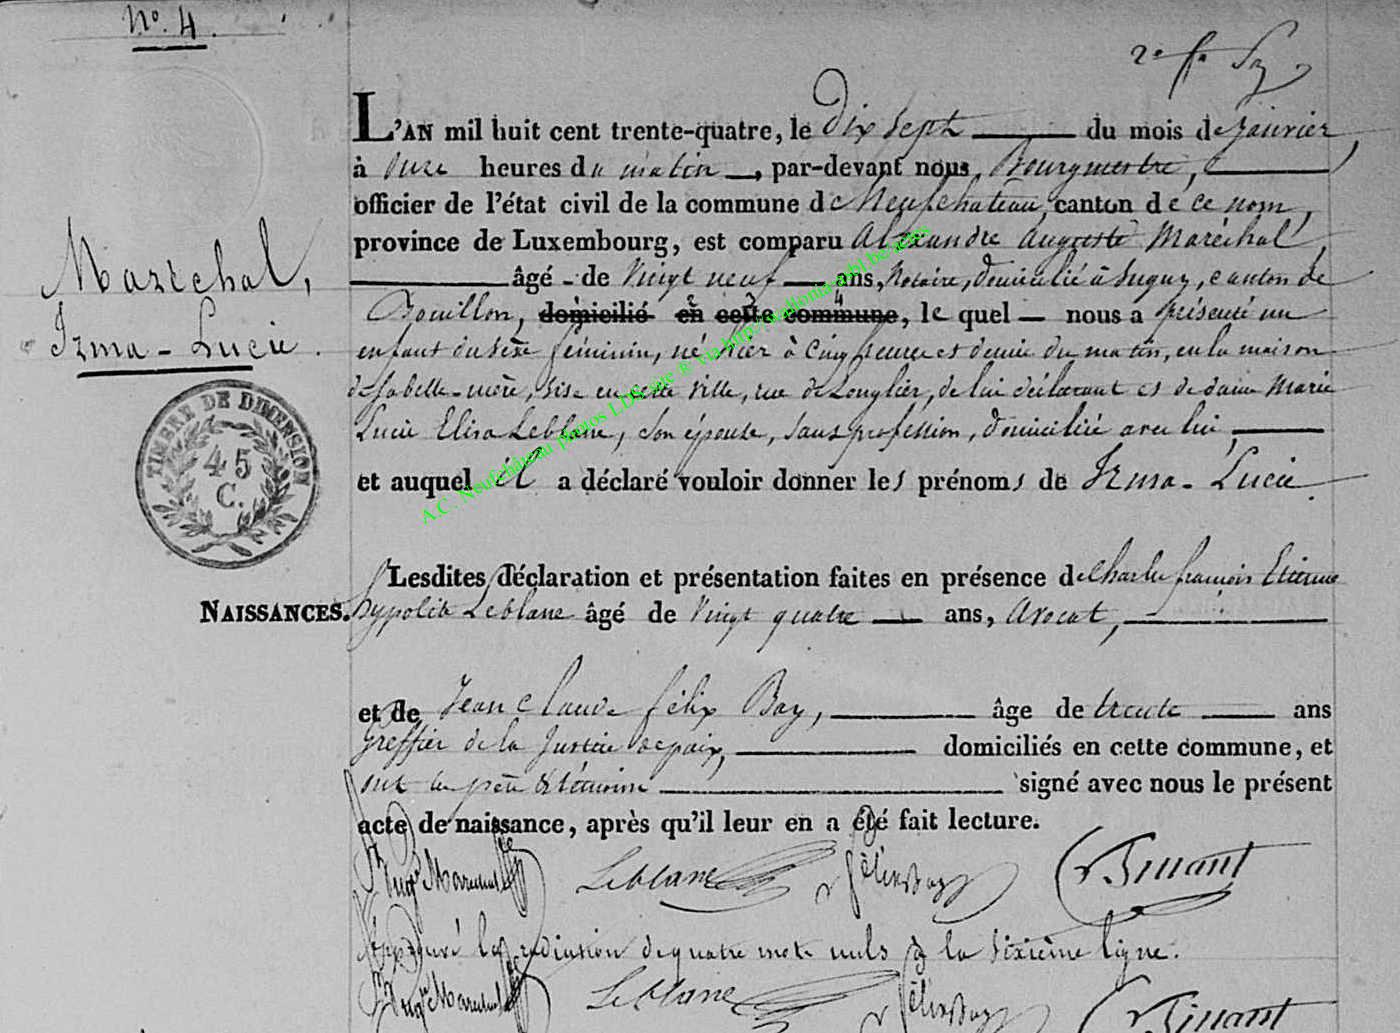 N.º 4.
2e
L'AN mil huit cent trente-quatre, le dix sept du mois de janvier,
à onze heures du matin, par-devant nous, Bourgmestre,
officier de l'état civil de la commune de Neufchateau, canton de ce nom,
province de Luxembourg, est comparu Alexandre Auguste Maréchal,
âgé de vingt neuf ans, Notaire, domicilié à Sugny, canton de
Bouillon, domicilié en cette commune, le quel nous a présenté un
enfant du sexe féminin, né hier à cinq heures et demie du matin, en la maison
de sa belle-mère, sise en cette ville, rue de Longlier, de lui déclarant et de dame Marie
Lucie Elisa Leblanc, son épouse, sans profession, domiciliée avec lui,
et auquel il a déclaré vouloir donner les prénoms de Irma-Lucie.
Maréchal,
Irma-Lucie.
TIMBRE DE DIMENSION
45
C.
NAISSANCES.
Lesdites déclaration et présentation faites en présence de Charles françois Etienne
hypolite Leblanc âgé de vingt quatre ans, avocat,
et de Jean Claude félix Bay, âge de trente ans
greffier de la Justice de paix, domiciliés en cette commune, et
ont les père & témoins signé avec nous le présent
acte de naissance, après qu'il leur en a été fait lecture.
Augte Marechal Leblanc félix Bay
Approuvé la radiation de quatre mots nuls à la sixième ligne.
Augte Marechal Leblanc félix Bay
A.C. Neufchâteau photos LDS site ® via http://wallonia-asbl.be/actes